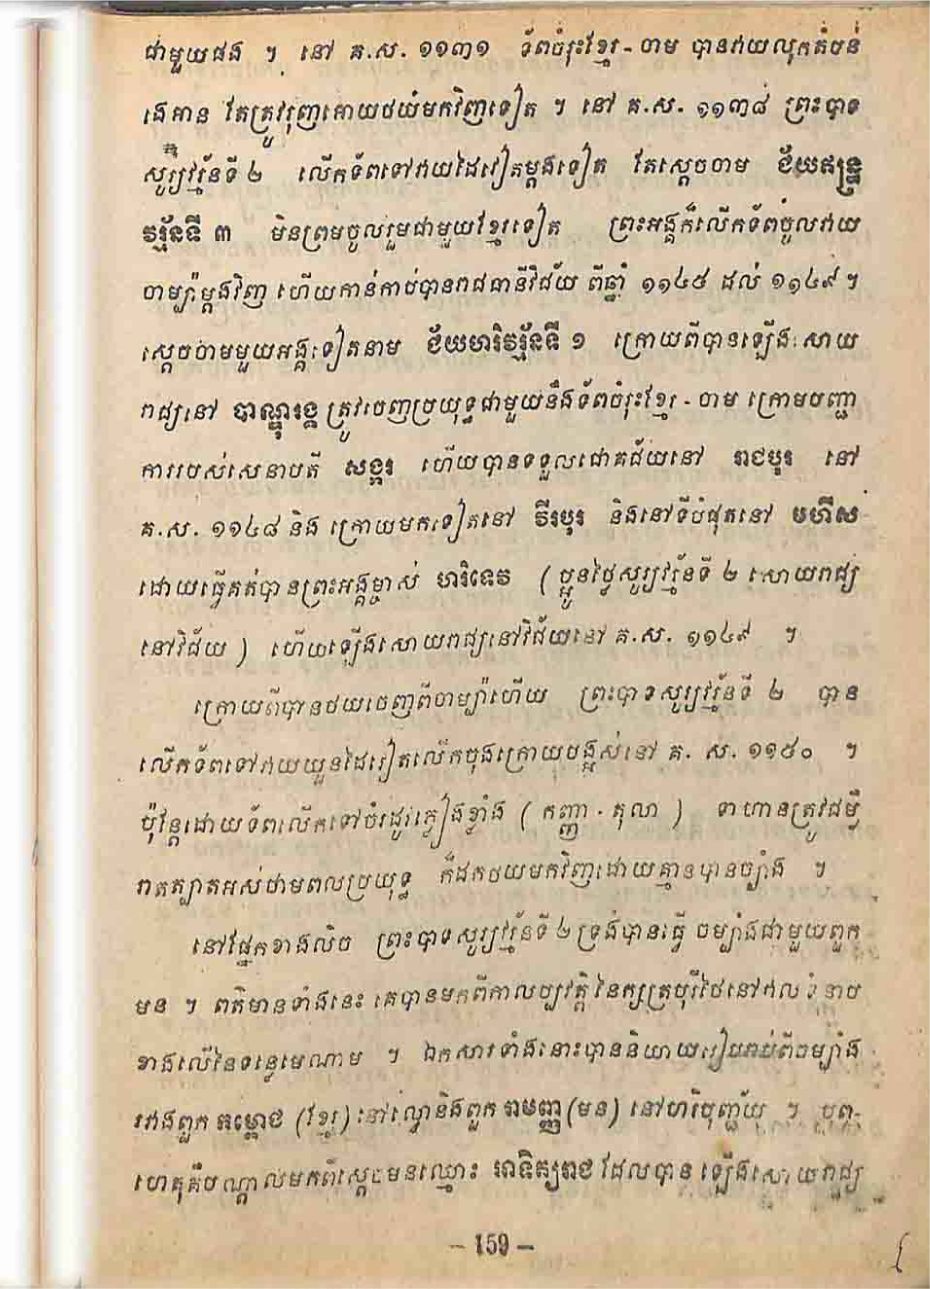 ជាមួយផង ។ នៅ គ.ស. ១១៣១ ទ័ពចំរុះខ្មែរ - ចាម បានវាយលុកតំបន់
ងេអាន តែត្រូវរុញអោយថយមកវិញទៀត ។ នៅ គ.ស. ១១៣៨ ព្រះបាទ
សូរ្យវរ្ម័នទី ២ លើកទ័ពទៅវាយដៃវៀតម្ដងទៀត តែស្ដេចចាម ជ័យឥន្ទ្រ
វរ្ម័នទី ៣ មិនព្រមចូលរួមជាមួយខ្មែរទៀត ព្រះអង្គក៏លើកទ័ពចូលវាយ
ចាម្ប៉ាម្ដងវិញ ហើយកាន់កាប់បានរាជធានីវិជ័យ ពីឆ្នាំ ១១៤៥ ដល់ ១១៤៩ ។
ស្ដេចចាមមួយអង្គទៀតនាម ជ័យហរិវរ្ម័នទី ១ ក្រោយពីបានឡើងសោយ
រាជ្យនៅ បាណ្ឌុរង្គ ត្រូវចេញប្រយុទ្ធជាមួយនឹងទ័ពចំរុះខ្មែរ - ចាម ក្រោមបញ្ជា
ការរបស់សេនាបតី សង្ករ ហើយបានទទួលជោគជ័យនៅ រាជបុរ នៅ
គ.ស. ១១៤៨ និង ក្រោយមកទៀតនៅ វីរបុរ និងនៅទីបំផុតនៅ មហីស
ដោយធ្វើគត់បានព្រះអង្គម្ចាស់ ហរិទេវ ( ប្អូនថ្លៃសូរ្យវរ្ម័នទី ២ សោយរាជ្យ
នៅវិជ័យ ) ហើយឡើងសោយរាជ្យនៅវិជ័យនៅ គ.ស. ១១៤៩ ។
ក្រោយពីបានថយចេញពីចាម្ប៉ាហើយ ព្រះបាទសូរ្យវរ្ម័នទី ២ បាន
លើកទ័ពទៅវាយយួនដៃវៀតលើកចុងក្រោយបង្អស់នៅ គ. ស. ១១៥០ ។
ប៉ុន្តែដោយទ័ពលើកទៅចំរដូវភ្លៀងខ្លាំង ( កញ្ញា - តុលា ) ទាហានត្រូវជម្ងឺ
រាតត្បាតអស់ថាមពលប្រយុទ្ធ ក៏ដកថយមកវិញដោយគ្មានបានច្បាំង ។
នៅផ្នែកខាងលិច ព្រះបាទសូរ្យវរ្ម័នទី ២ ទ្រង់បានធ្វើ ចម្បាំងជាមួយពួក
មន ។ ពត៌មានទាំងនេះ គេបានមកពីកាលប្បវត្តិ នៃក្សត្របុរីថៃនៅវាលទំនាប
ខាងលើនៃទន្លេមេណាម ។ ឯកសារទាំងនោះបាននិយាយរៀបរាប់ពីចម្បាំង
រវាងពួក កម្ពោជ (ខ្មែរ) នៅល្វោនិងពួក រាមញ្ញ (មន) នៅហរិបុញ្ជ័យ ។ បុព្វ-
ហេតុគឺបណ្ដាលមកពីស្ដេចមនឈ្មោះ អាទិត្យរាជ ដែលបាន ឡើងសោយរាជ្យ
- 159 -